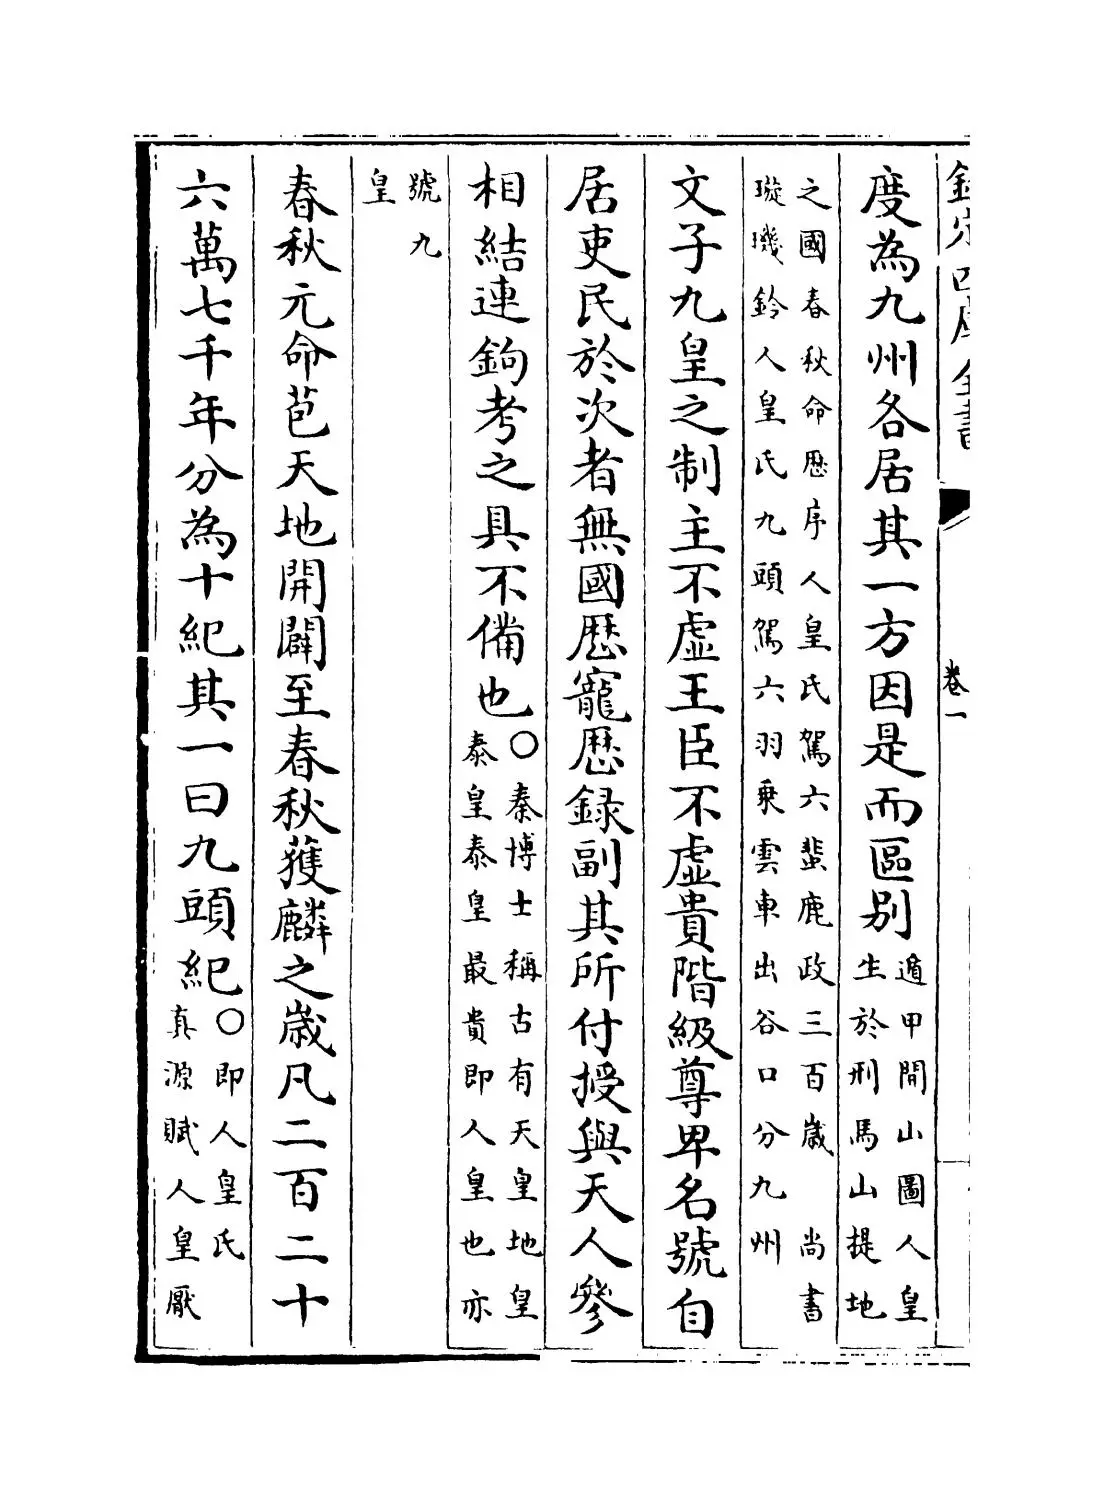 欽定四庫全書
卷一
度為九州各居其一方因是而區别
遁甲開山圖人皇
生於刑馬山提地
之國春秋命厯序人皇氏駕六蜚鹿政三百歲　尚書
璇璣鈐人皇氏九頭駕六羽乗雲車出谷口分九州
文子九皇之制主不虚王臣不虚貴階級尊卑名號自
居吏民於次者無國厯寵厯録副其所付授與天人參
相結連鉤考之具不備也
○秦博士稱古有天皇地皇
泰皇泰皇最貴即人皇也亦
號九
皇
春秋元命苞天地開闢至春秋獲麟之歲凡二百二十
六萬七千年分為十紀其一曰九頭紀
○即人皇氏
真源賦人皇厥